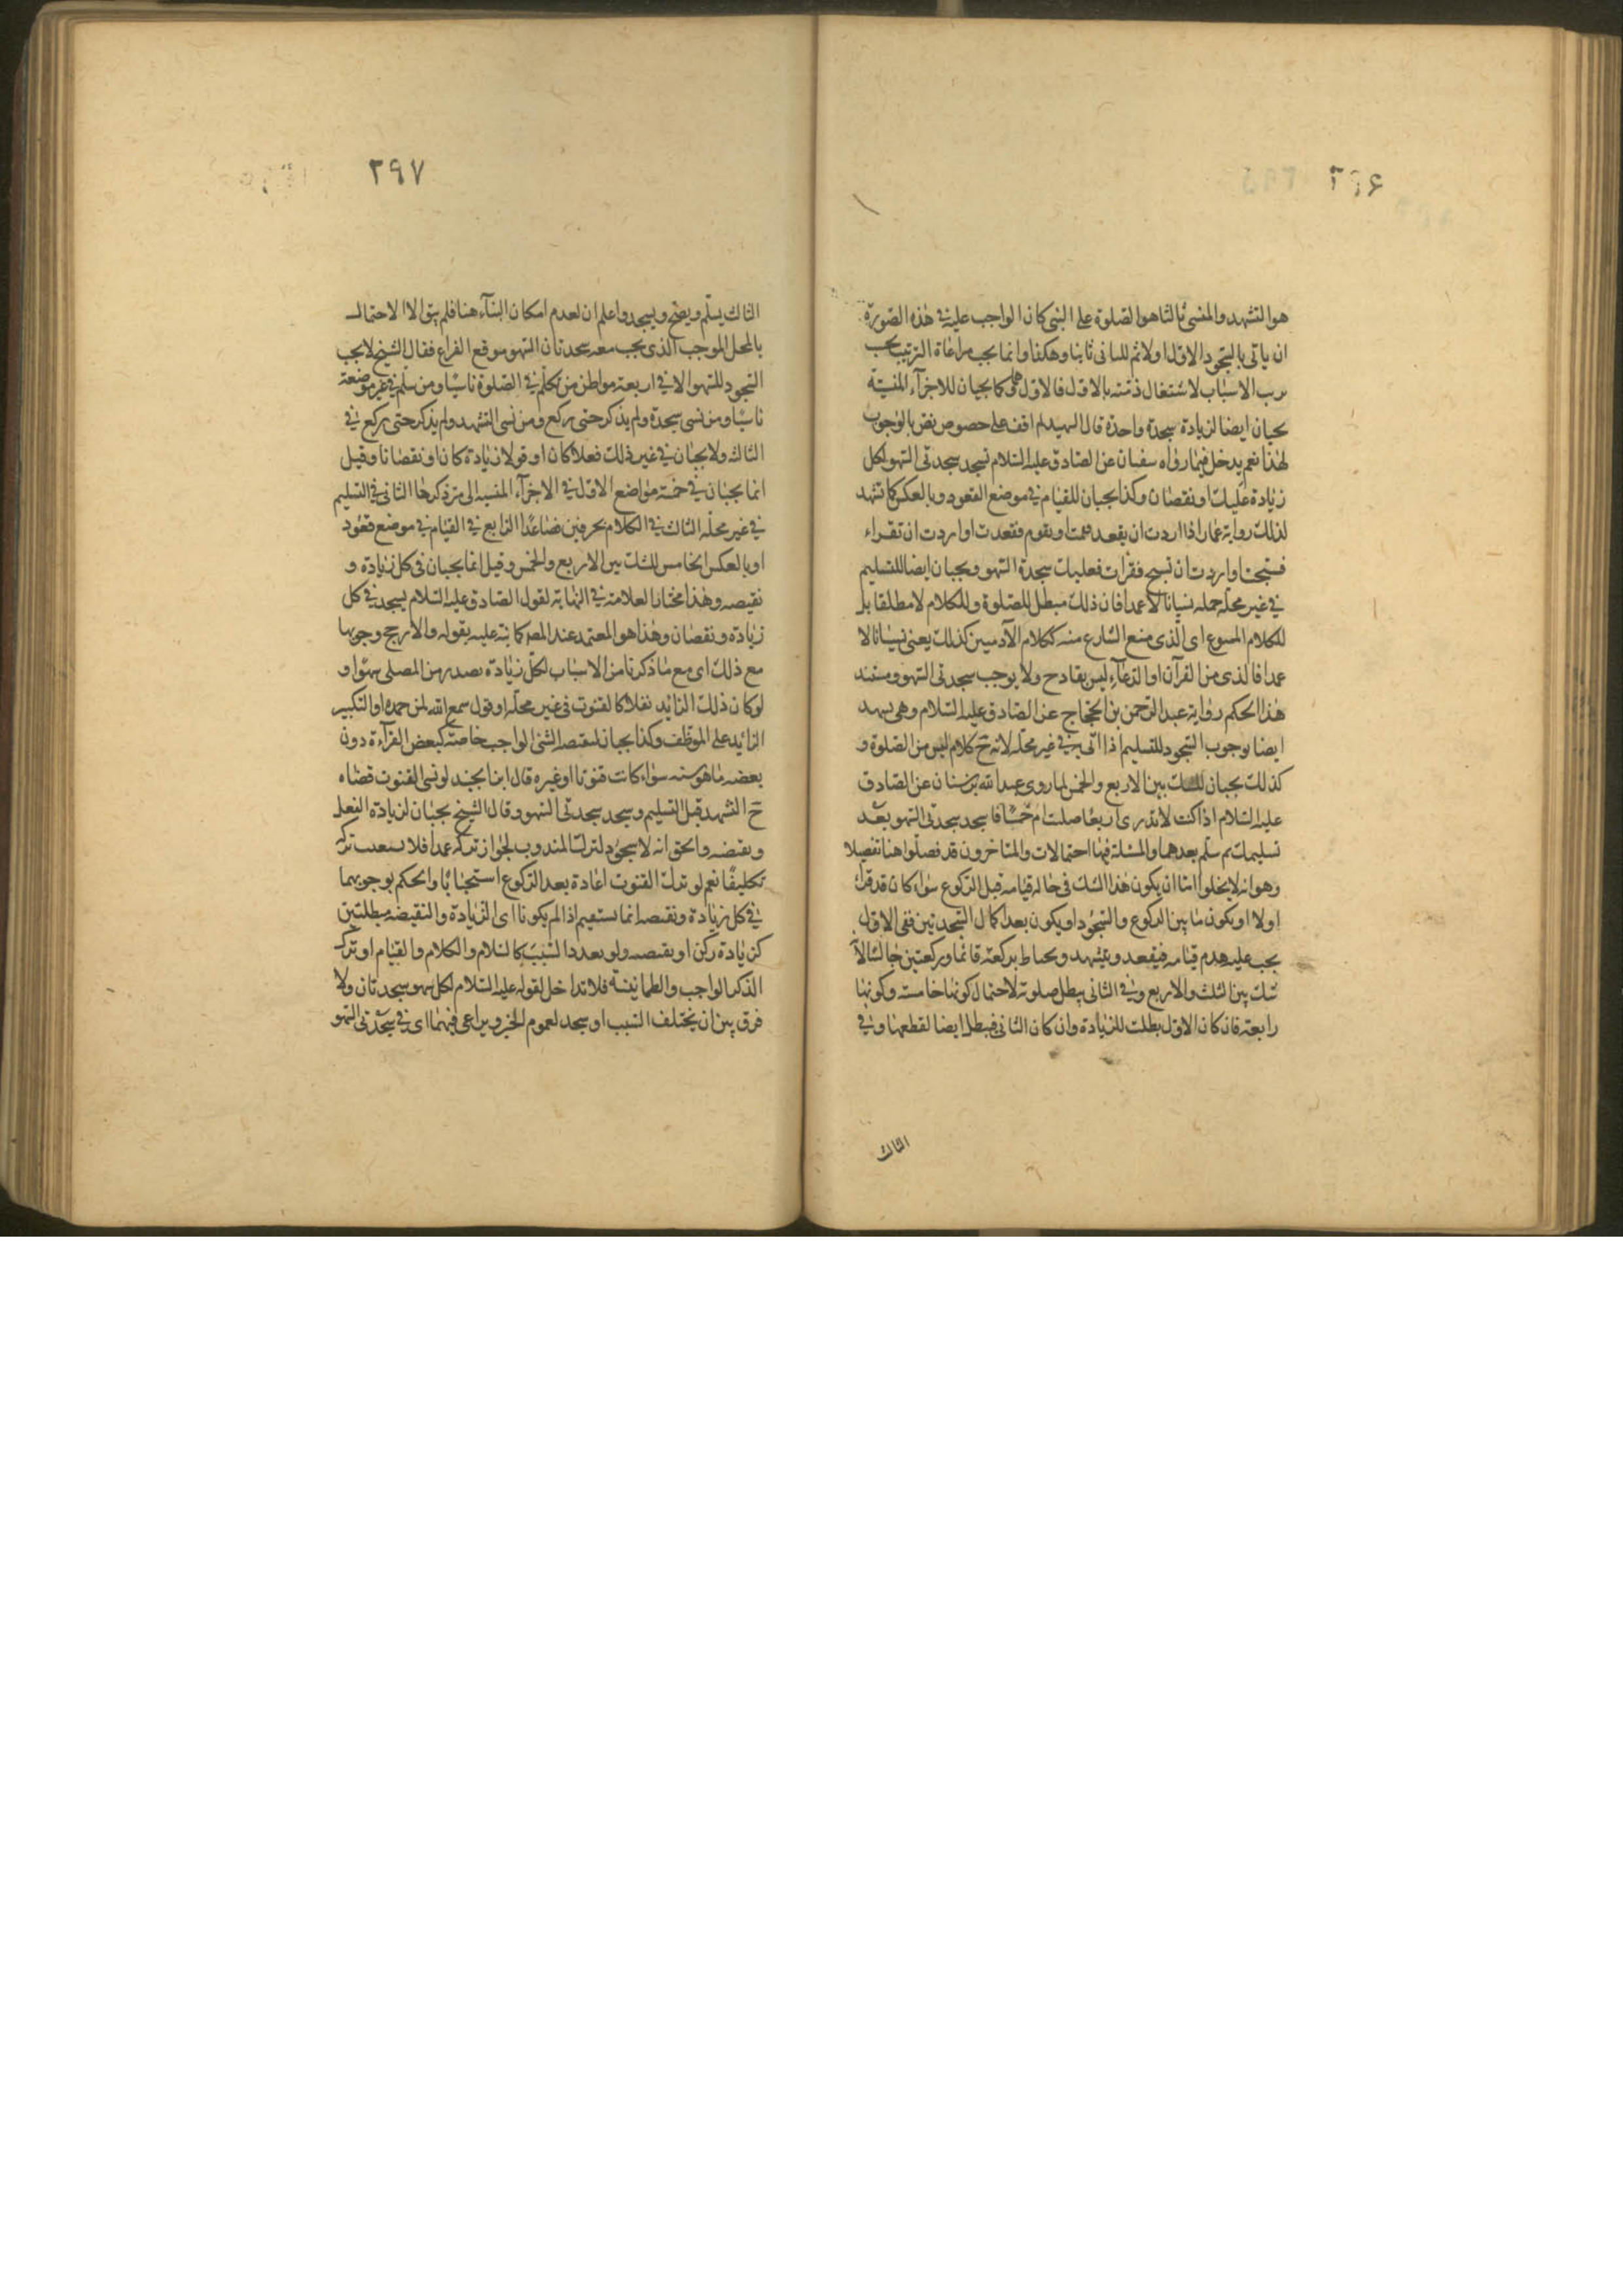 ٢٩۶
هو التشهد والمنسی ثالثا هو الصلوة علی النبی کان الواجب علیه فی هذه الصورة
ان یاتی بالسجود الاول اولا ثم للثانی ثانیا وهکذا وانما یجب مراعاة الترتیب بحسب
الاسباب لاشتغال ذمته بالاول فالاول کما یجبان للاجزآء المنسیّة
یجبان ایضا لزیادة سجدة واحدة قال الشهید لم اقف علی خصوص نص بالوجوب
لهذا نعم یدخل فیما رواه سفیان عن الصادق علیه السّلام تسجد سجدتی السّهو لکل
زیادة علیک او نقصان وکذا یجبان للقیام فی موضع القعود وبالعکس کما تشهد
لذلک روایة عمار اذا اردت ان تقعد فقمت او تقوم فقعدت او اردت ان تقراء
فسبحت او اردت ان تسبح فقرات فعلیک سجدة السّهو ویجبان ایضا للتسلیم
فی غیر محلّه جمله نسیانا لا عمدا فان ذلک مبطل للصّلوة وللکلام لا مطلقا بل
للکلام الممنوع ای الذی منع الشارع منه ککلام الآدمیین کذلک یعنی نسیانا لا
عمدا فالذی من القرآن او الدعآء لیس بقادح ولا یوجب سجدتی السّهو ومستند
هذا الحکم روایة عبد الرّحمن بن الحجّاج عن الصّادق علیه السّلام وهی تشهد
ایضا بوجوب السّجود للتسلیم اذا اتی به فی غیر محلّه لانه ح کلام لیس من الصّلوة و
کذلک یجبان للشک بین الاربع والخمس لما روی عبد الله بن سنان عن الصّادق
علیه السّلام اذا کنت لا تدری اربعا صلّیت ام خمسا فاسجد سجدتی السّهو بعد
تسلیمک ثم سلّم بعدهما والمسئلة فیها احتمالات والمتاخرون قد فصلّوا هنا تفصیلا
وهو انه لا یخلوا امّا ان یکون هذا الشک فی حالة قیامه قبل الرّکوع سواء کان قد قرأ
اولا او یکون ما بین الرکوع والسّجود او یکون بعد اکمال السّجدتین ففی الاول
یجب علیه هدم قیامه فیقعد ویتشهد ویحتاط برکعة قائما ورکعتین جالسا لانّه
شک بین الثلث والاربع وفی الثانی یبطل صلوته لاحتمال کونها خامسة وکونها
رابعة فان کان الاول بطلت للزّیادة وان کان الثانی فیبطل ایضا لقطعها وفی
الثالث
٢٩٧
الثالث یسلّم ویصحّ ویسجد واعلم ان لعدم امکان البنآء هنا فلم یبق الا الاحتمال
بالمحل الموجب الذی یجب معه سجدتان السّهو موقع الفراغ فقال الشیخ لا یجب
السّجود للسّهو الا فی اربعة مواطن من تکلّم فی الصّلوة ناسیا ومن سلّم فی غیر موضعه
ناسیا ومن نسی سجدة ولم یذکر حتی رکع ومن نسی التشهد ولم یذکر حتی رکع فی
الثالثه ولا یجبان فی غیر ذلک فعلا کان او قولا زیادة کان او نقصانا وقیل
انما یجبان فی خمسة مواضع الاول فی الاجزآء المنسیة التی مرّ ذکرها الثانی فی التسلیم
فی غیر محلّه الثالث فی الکلام بحرفین فصاعدا الرّابع فی القیام فی موضع قعود
او بالعکس الخامس للشک بین الاربع والخمس وقیل انما یجبان فی کل زیادة و
نقیصه وهذا مختار العلامة فی النهایة لقول الصّادق علیه السّلام یسجد فی کل
زیادة ونقصان وهذا هو المعتمد عند المصه کما نبّه علیه بقوله والارجح وجوبها
مع ذلک ای مع ما ذکرنا من الاسباب لکلّ زیادة یصدر من المصلی سهوا و
لو کان ذلک الزائد نفلا کالقنوت فی غیر محلّه او قول سمع الله لمن حمده او التکبیر
الزائد علی الموظف وکذا یجبان لنقیصة الشئ الواجب خاصّة کبعض القرآءة دون
بعضه ما هو سنة سواء کانت قنوتا او غیره قال ابن الجنید لو نسی القنوت قضاه
ح التشهد قبل التسلیم وسجد سجدتی السّهو وقال الشیخ یجبان لزیادة النفل
ونقصه والحق انه لا سجود لترک المندوب لجواز ترکه عمدا فلا یستعقب ترکه
تکلیفا نعم لو ترک القنوت اعادة بعد الرّکوع استحبابا والحکم بوجوبهما
فی کل زیادة ونقصه انما یستقیم اذا لم یکونا ای الزّیادة والنقیصة مبطلتین
کزیادة رکن او نقصه ولو تعدد السّبب کالسّلام والکلام والقیام او ترک
الذکر الواجب والطمانینة فلا تداخل لقوله علیه السّلام لکل سهو سجدتان ولا
فرق بین ان یختلف السّبب او سجد لعموم الخبر ویراعی فیهما ای فی سجدتی السّهو